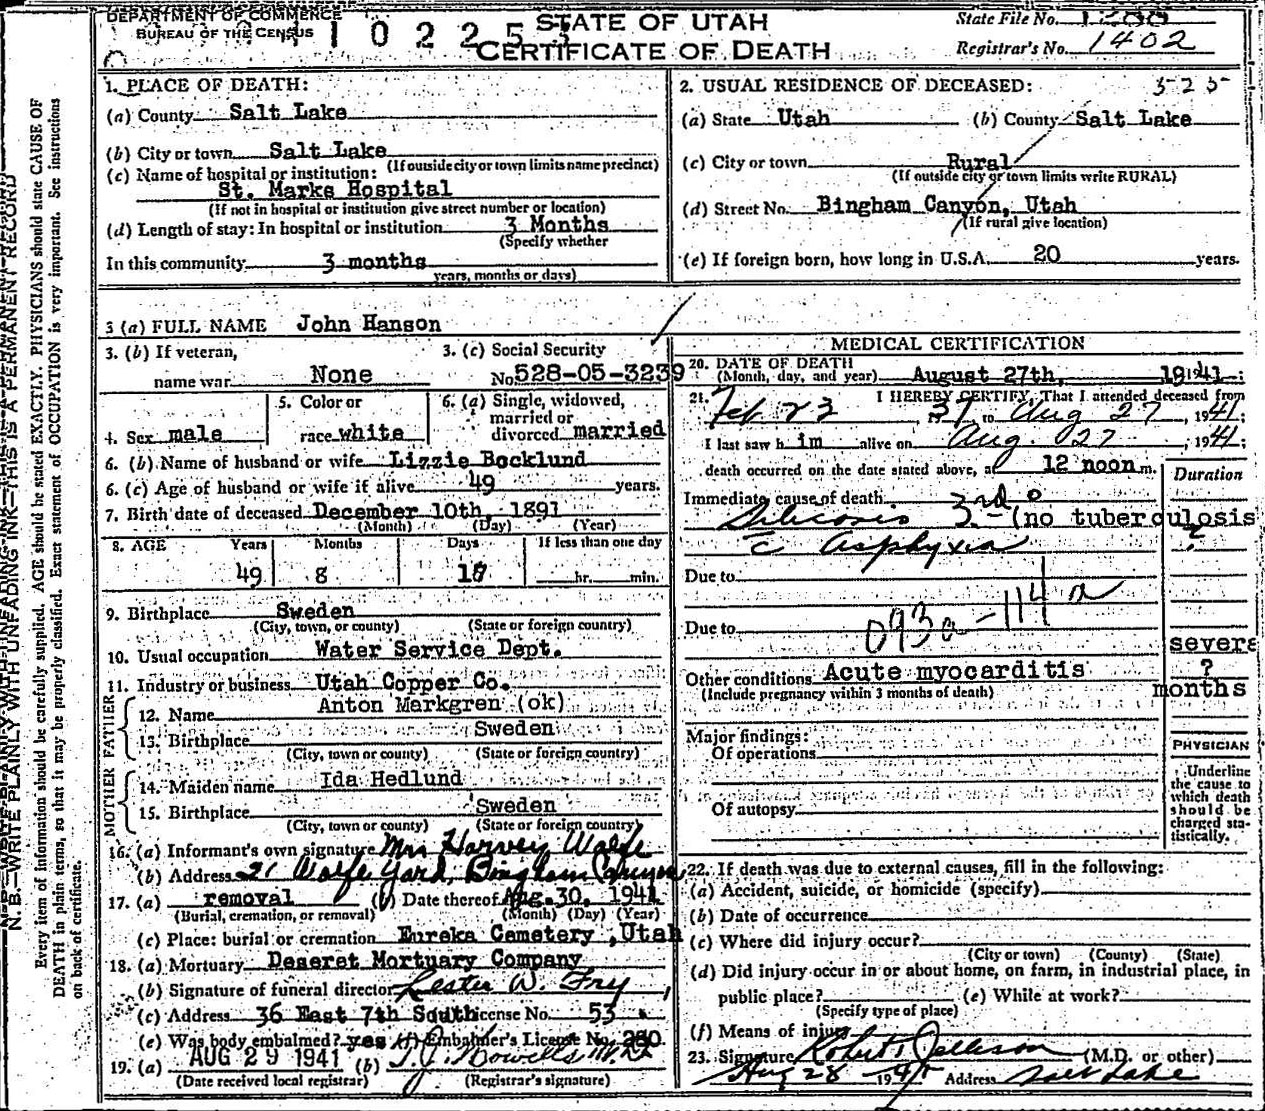 DEPARTMENT OF COMMERCE
BUREAU OF THE CENSUS
1 0 2 2 5
STATE OF UTAH
CERTIFICATE OF DEATH
State File No.
Registrar's No. 1402
N. B.—WRITE PLAINLY WITH UNFADING INK—THIS IS A PERMANENT RECORD
Every item of information should be carefully supplied. AGE should be stated EXACTLY. PHYSICIANS should state CAUSE OF
DEATH in plain terms, so that it may be properly classified. Exact statement of OCCUPATION is very important. See instructions
on back of certificate.
1. PLACE OF DEATH:
(a) County Salt Lake
(b) City or town Salt Lake
(If outside city or town limits name precinct)
(c) Name of hospital or institution:
St. Marks Hospital
(If not in hospital or institution give street number or location)
(d) Length of stay: In hospital or institution 3 Months
(Specify whether
In this community 3 months
years, months or days)
2. USUAL RESIDENCE OF DECEASED: 525
(a) State Utah (b) County Salt Lake
(c) City or town Rural
(If outside city or town limits write RURAL)
(d) Street No. Bingham Canyon, Utah
(If rural give location)
(e) If foreign born, how long in U.S.A. 20 years.
3 (a) FULL NAME John Hanson
3. (b) If veteran,
name war None
3. (c) Social Security
No. 528-05-3239
4. Sex male
5. Color or
race white
6. (a) Single, widowed,
married or
divorced married
6. (b) Name of husband or wife Lizzie Bocklund
6. (c) Age of husband or wife if alive 49 years.
7. Birth date of deceased December 10th, 1891
(Month) (Day) (Year)
8. AGE Years Months Days If less than one day
49 8 17 hr. min.
9. Birthplace Sweden
(City, town, or county) (State or foreign country)
10. Usual occupation Water Service Dept.
11. Industry or business Utah Copper Co.
FATHER
12. Name Anton Markgren (ok)
13. Birthplace Sweden
(City, town or county) (State or foreign country)
MOTHER
14. Maiden name Ida Hedlund
15. Birthplace Sweden
(City, town or county) (State or foreign country)
16. (a) Informant's own signature Mrs Harvey Wolfe
(b) Address 21 Wolfe Yard, Bingham Canyon
17. (a) removal (b) Date thereof Aug. 30, 1941
(Burial, cremation, or removal) (Month) (Day) (Year)
(c) Place: burial or cremation Eureka Cemetery, Utah
18. (a) Mortuary Deseret Mortuary Company
(b) Signature of funeral director Lester W. Fry
(c) Address 36 East 7th South License No. 53
(e) Was body embalmed? yes (f) Embalmer's License No.
19. (a) AUG 29 1941 (b) T.J. Howells
(Date received local registrar) (Registrar's signature)
MEDICAL CERTIFICATION
20. DATE OF DEATH
(Month, day, and year) August 27th, 1941
21. I HEREBY CERTIFY, That I attended deceased from
Feb 23, 37 to Aug 27, 1941;
I last saw h im alive on Aug. 27, 1941;
death occurred on the date stated above, at 12 noon m.
Duration
Immediate cause of death
Silicosis 3rd ° (no tuberculosis
c̄ asphyxia ?
Due to
Due to 093a - 114 a
Other conditions Acute myocarditis
(Include pregnancy within 3 months of death)
severa
?
months
Major findings:
Of operations
Of autopsy
PHYSICIAN
Underline
the cause to
which death
should be
charged sta-
tistically.
22. If death was due to external causes, fill in the following:
(a) Accident, suicide, or homicide (specify)
(b) Date of occurrence
(c) Where did injury occur?
(City or town) (County) (State)
(d) Did injury occur in or about home, on farm, in industrial place, in
public place? (e) While at work?
(Specify type of place)
(f) Means of injury
23. Signature Robert Jellison (M.D. or other)
Aug 28 1941 Address Salt Lake